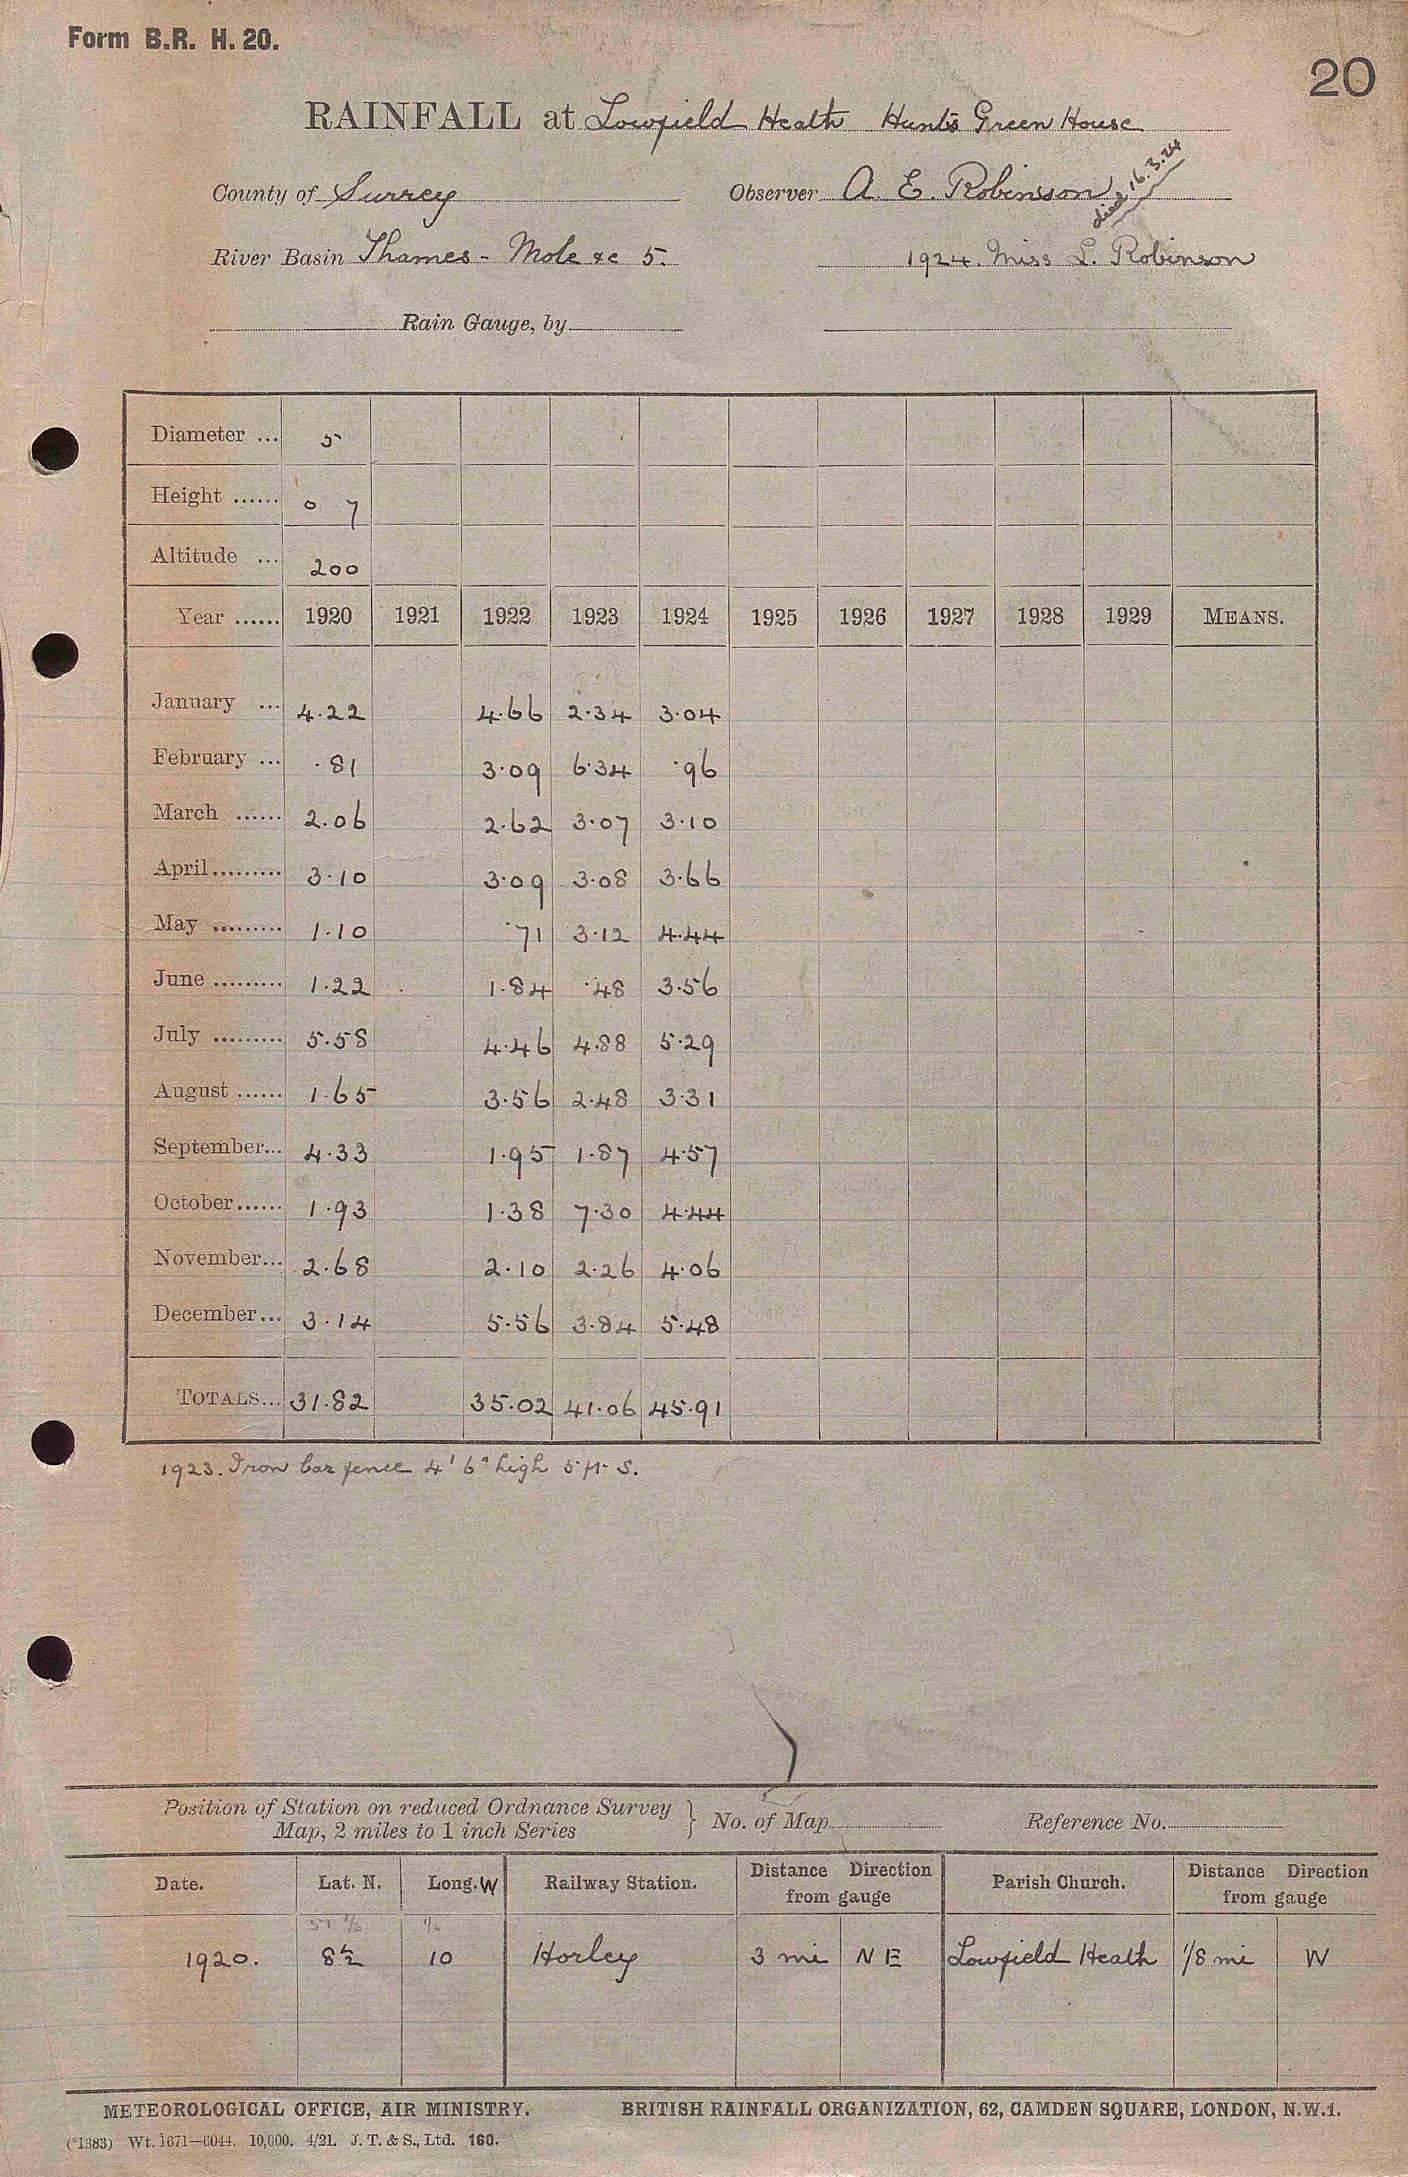 Form B.R. H. 20.
20
RAINFALL at Lowfield Heath Hunt's Green House
County of Surrey Observer A. E. Robinson died 16.3.24
River Basin Thames - Mole &c 5. 1924. Miss L. Robinson
Rain Gauge, by
Diameter ... 5
Height ...... 0 7
Altitude ... 200
Year ...... 1920 1921 1922 1923 1924 1925 1926 1927 1928 1929 MEANS.
January ... 4.22 4.66 2.34 3.04
February ... .81 3.09 6.34 .96
March ...... 2.06 2.62 3.07 3.10
April......... 3.10 3.09 3.08 3.66
May ......... 1.10 .71 3.12 4.44
June ......... 1.22 1.84 .48 3.56
July ......... 5.58 4.46 4.88 5.29
August ...... 1.65 3.56 2.48 3.31
September... 4.33 1.95 1.87 4.57
October...... 1.93 1.38 7.30 4.44
November... 2.68 2.10 2.26 4.06
December... 3.14 5.56 3.84 5.48
TOTALS... 31.82 35.02 41.06 45.91
1923. Iron bar fence 4' 6" high 5 ft S.
Position of Station on reduced Ordnance Survey
Map, 2 miles to 1 inch Series } No. of Map Reference No.
Date. Lat. N. Long. W Railway Station. Distance Direction from gauge Parish Church. Distance Direction from gauge
51 1/6 1/6
1920. 8½ 10 Horley 3 mi N E Lowfield Heath 1/8 mi W
METEOROLOGICAL OFFICE, AIR MINISTRY. BRITISH RAINFALL ORGANIZATION, 62, CAMDEN SQUARE, LONDON, N.W.1.
(*1383) Wt. 1671—6044. 10,000. 4/21. J. T. & S., Ltd. 160.